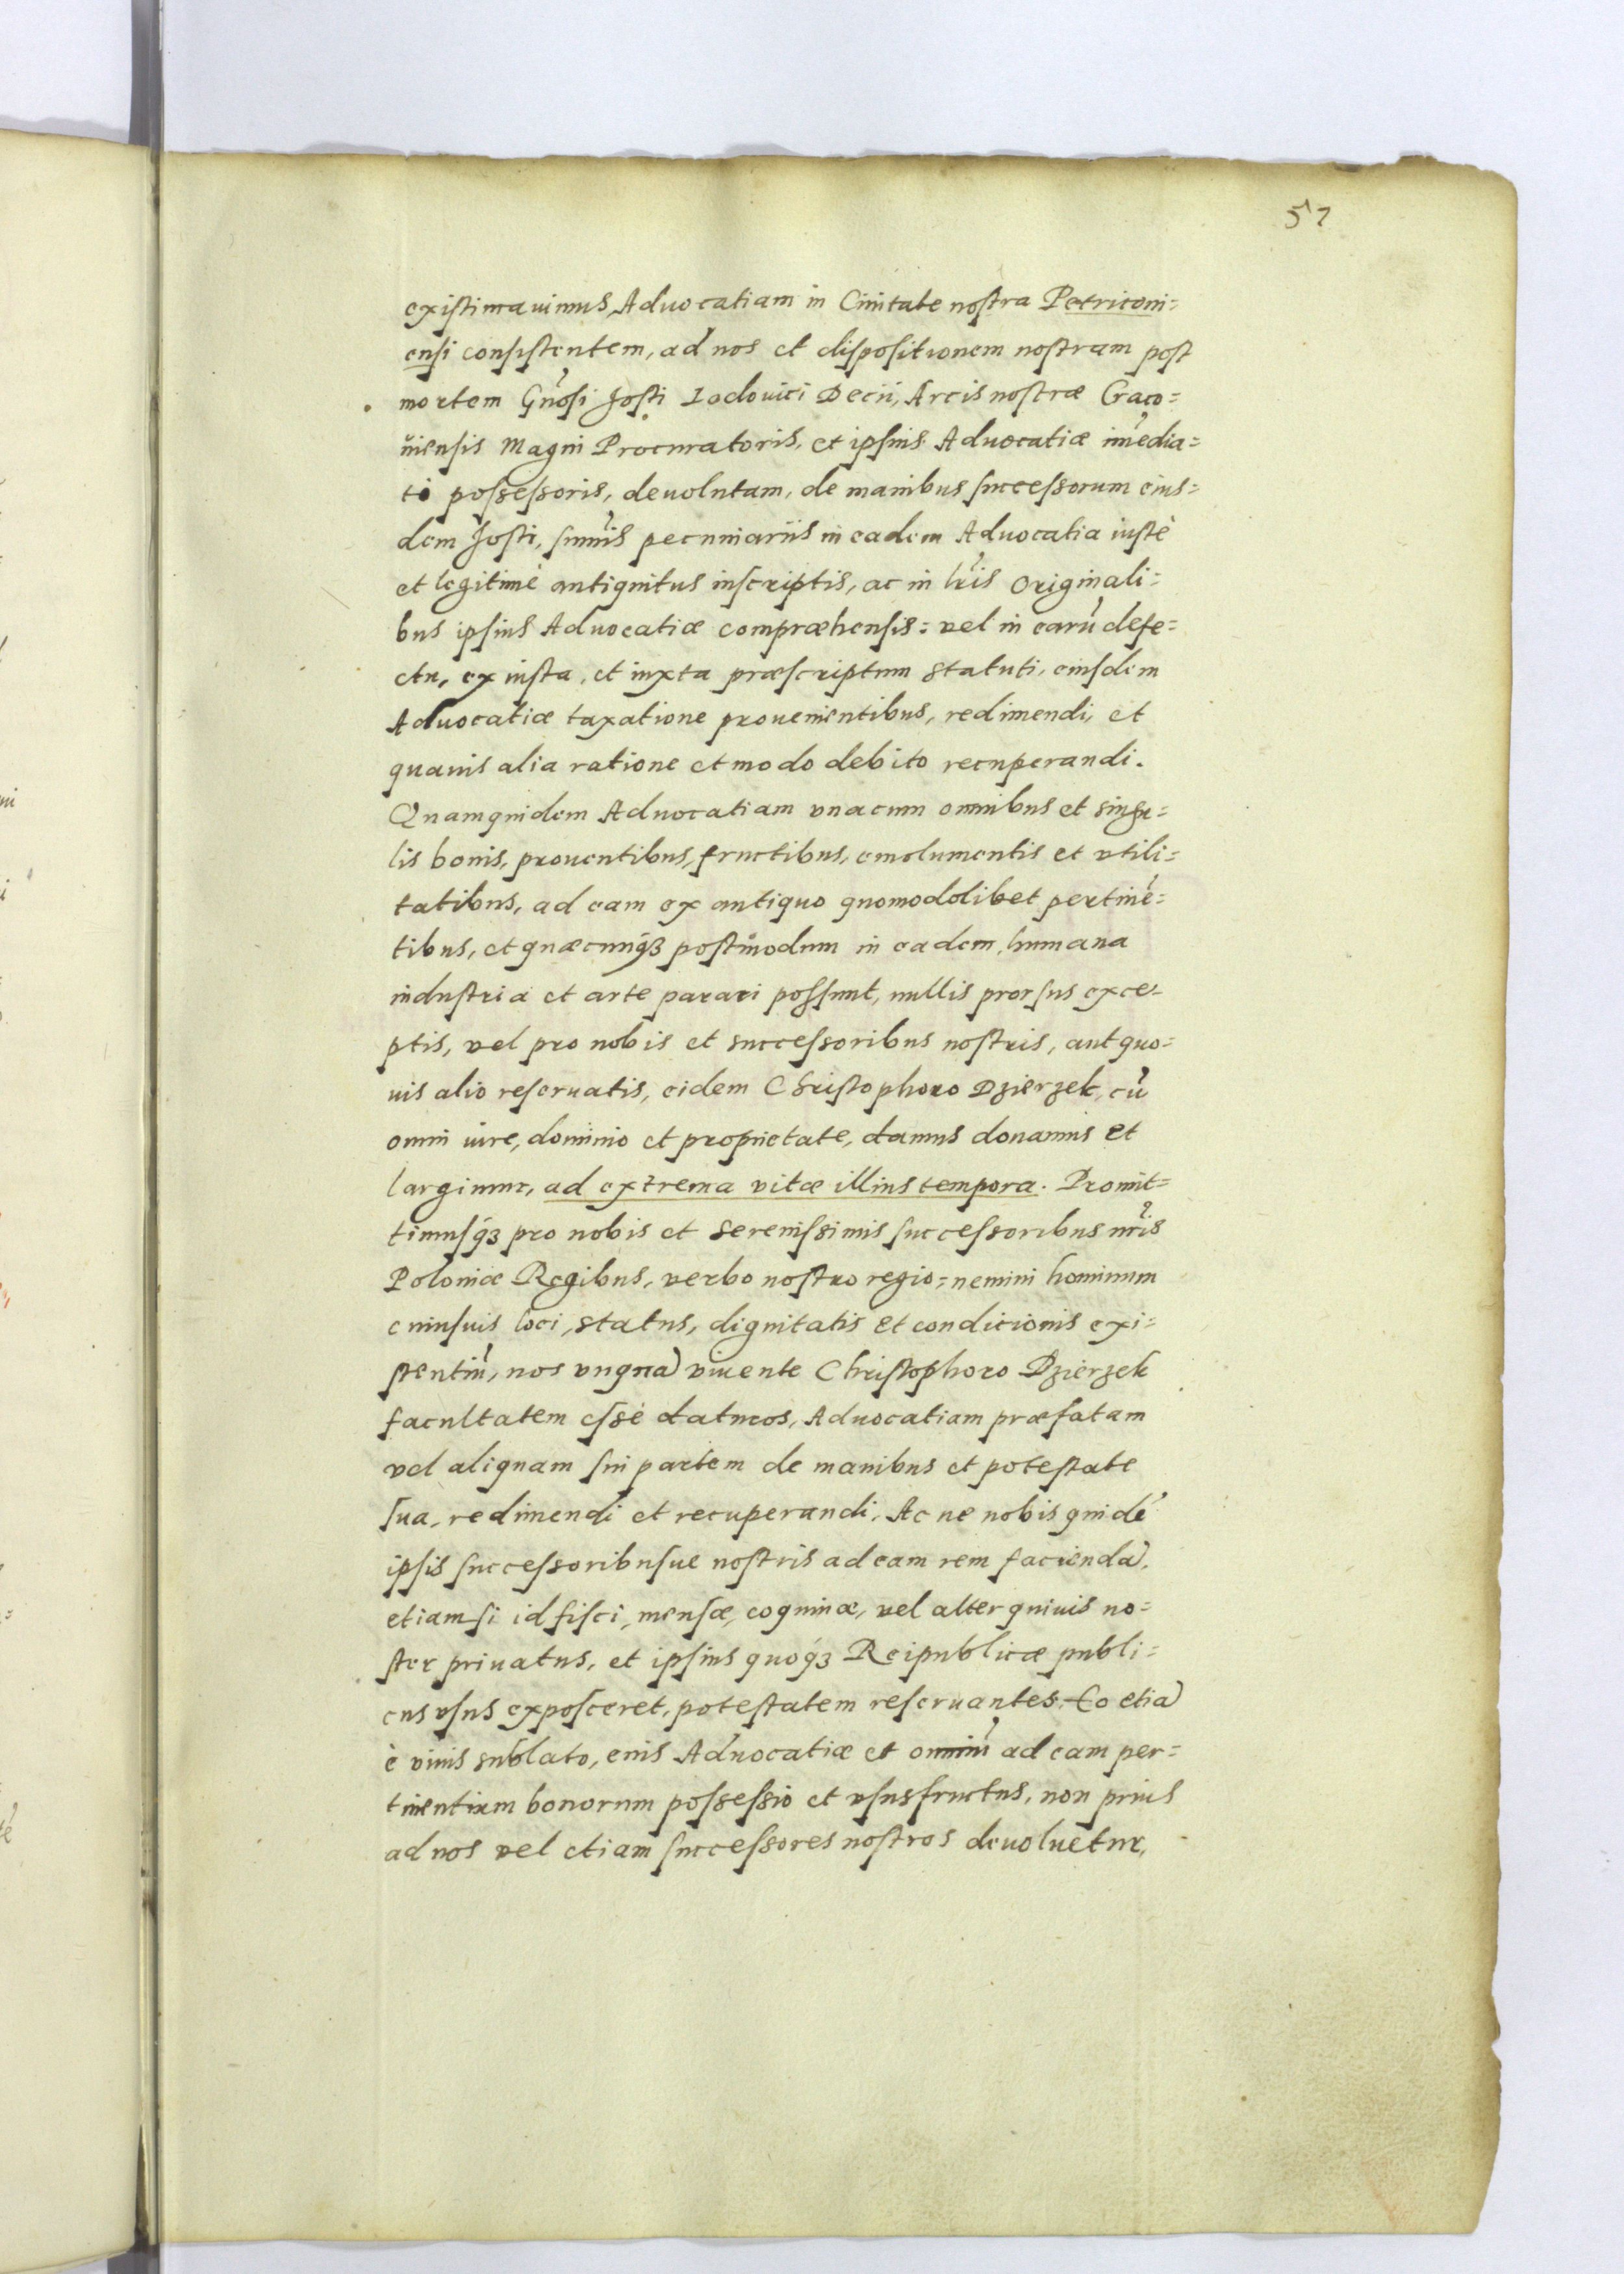 57
existimauimus, Aduocatiam in Ciuitate nostra Petriconi=
ensi consistentem, ad nos et dispositionem nostram post
mortem Gñosi Josti Lodouici Decii, Arcis nostræ Craco=
uiensis Magni Procuratoris, et ipsius Aduocatiæ im̃edia=
ti possessoris, deuolutam, de manibus successorum eius=
dem Josti, sum̃is pecuniariis in eadem Aduocatia iustè
et legitimè antiquitus inscriptis, ac in lr̃is originali=
bus ipsius Aduocatiæ compræhensis: vel in earũ defe=
ctu, ex iusta, et iuxta præscriptum statuti, eiusdem
Aduocatiæ taxatione prouenientibus, redimendi, et
quauis alia ratione et modo debito recuperandi.
Quamquidem Aduocatiam vnacum omnibus et singu=
lis bonis, prouentibus, fructibus, emolumentis et vtili=
tatibus, ad eam ex antiquo quomodolibet pertinẽ=
tibus, et quæcunqꝫ postmodum in eadem, humana
industria et arte parari possunt, nullis prorsus exce-
ptis, vel pro nobis et successoribus nostris, aut quo=
uis alio reseruatis, eidem Christophoro Dzierzek, cũ
omni iure, dominio et proprietate, damus donamus et
largimur, ad extrema vitæ illius tempora. Promit=
timusqꝫ pro nobis et serenissimis successoribus nr̃is
Poloniæ Regibus, verbo nostro regio: nemini hominum
cuiusuis loci, status, dignitatis et condicionis exi=
stentiũ, nos vnquã viuente Christophoro Dzierzek
facultatem esse daturos, Aduocatiam præfatam
vel aliquam sui partem de manibus et potestate
sua, redimendi et recuperandi, Ac ne nobis quidẽ
ipsis successoribusue nostris ad eam rem faciendã,
etiamsi id fisci, mensæ, coquinæ, vel alter quiuis no=
ster priuatus, et ipsius quoqꝫ Reipublicæ publi=
cus vsus exposceret, potestatem reseruantes. Eo etiã
è viuis sublato, eius Aduocatiæ et omniũ ad eam per=
tinentium bonorum possessio et vsusfructus, non prius
ad nos vel etiam successores nostros deuoluetur,